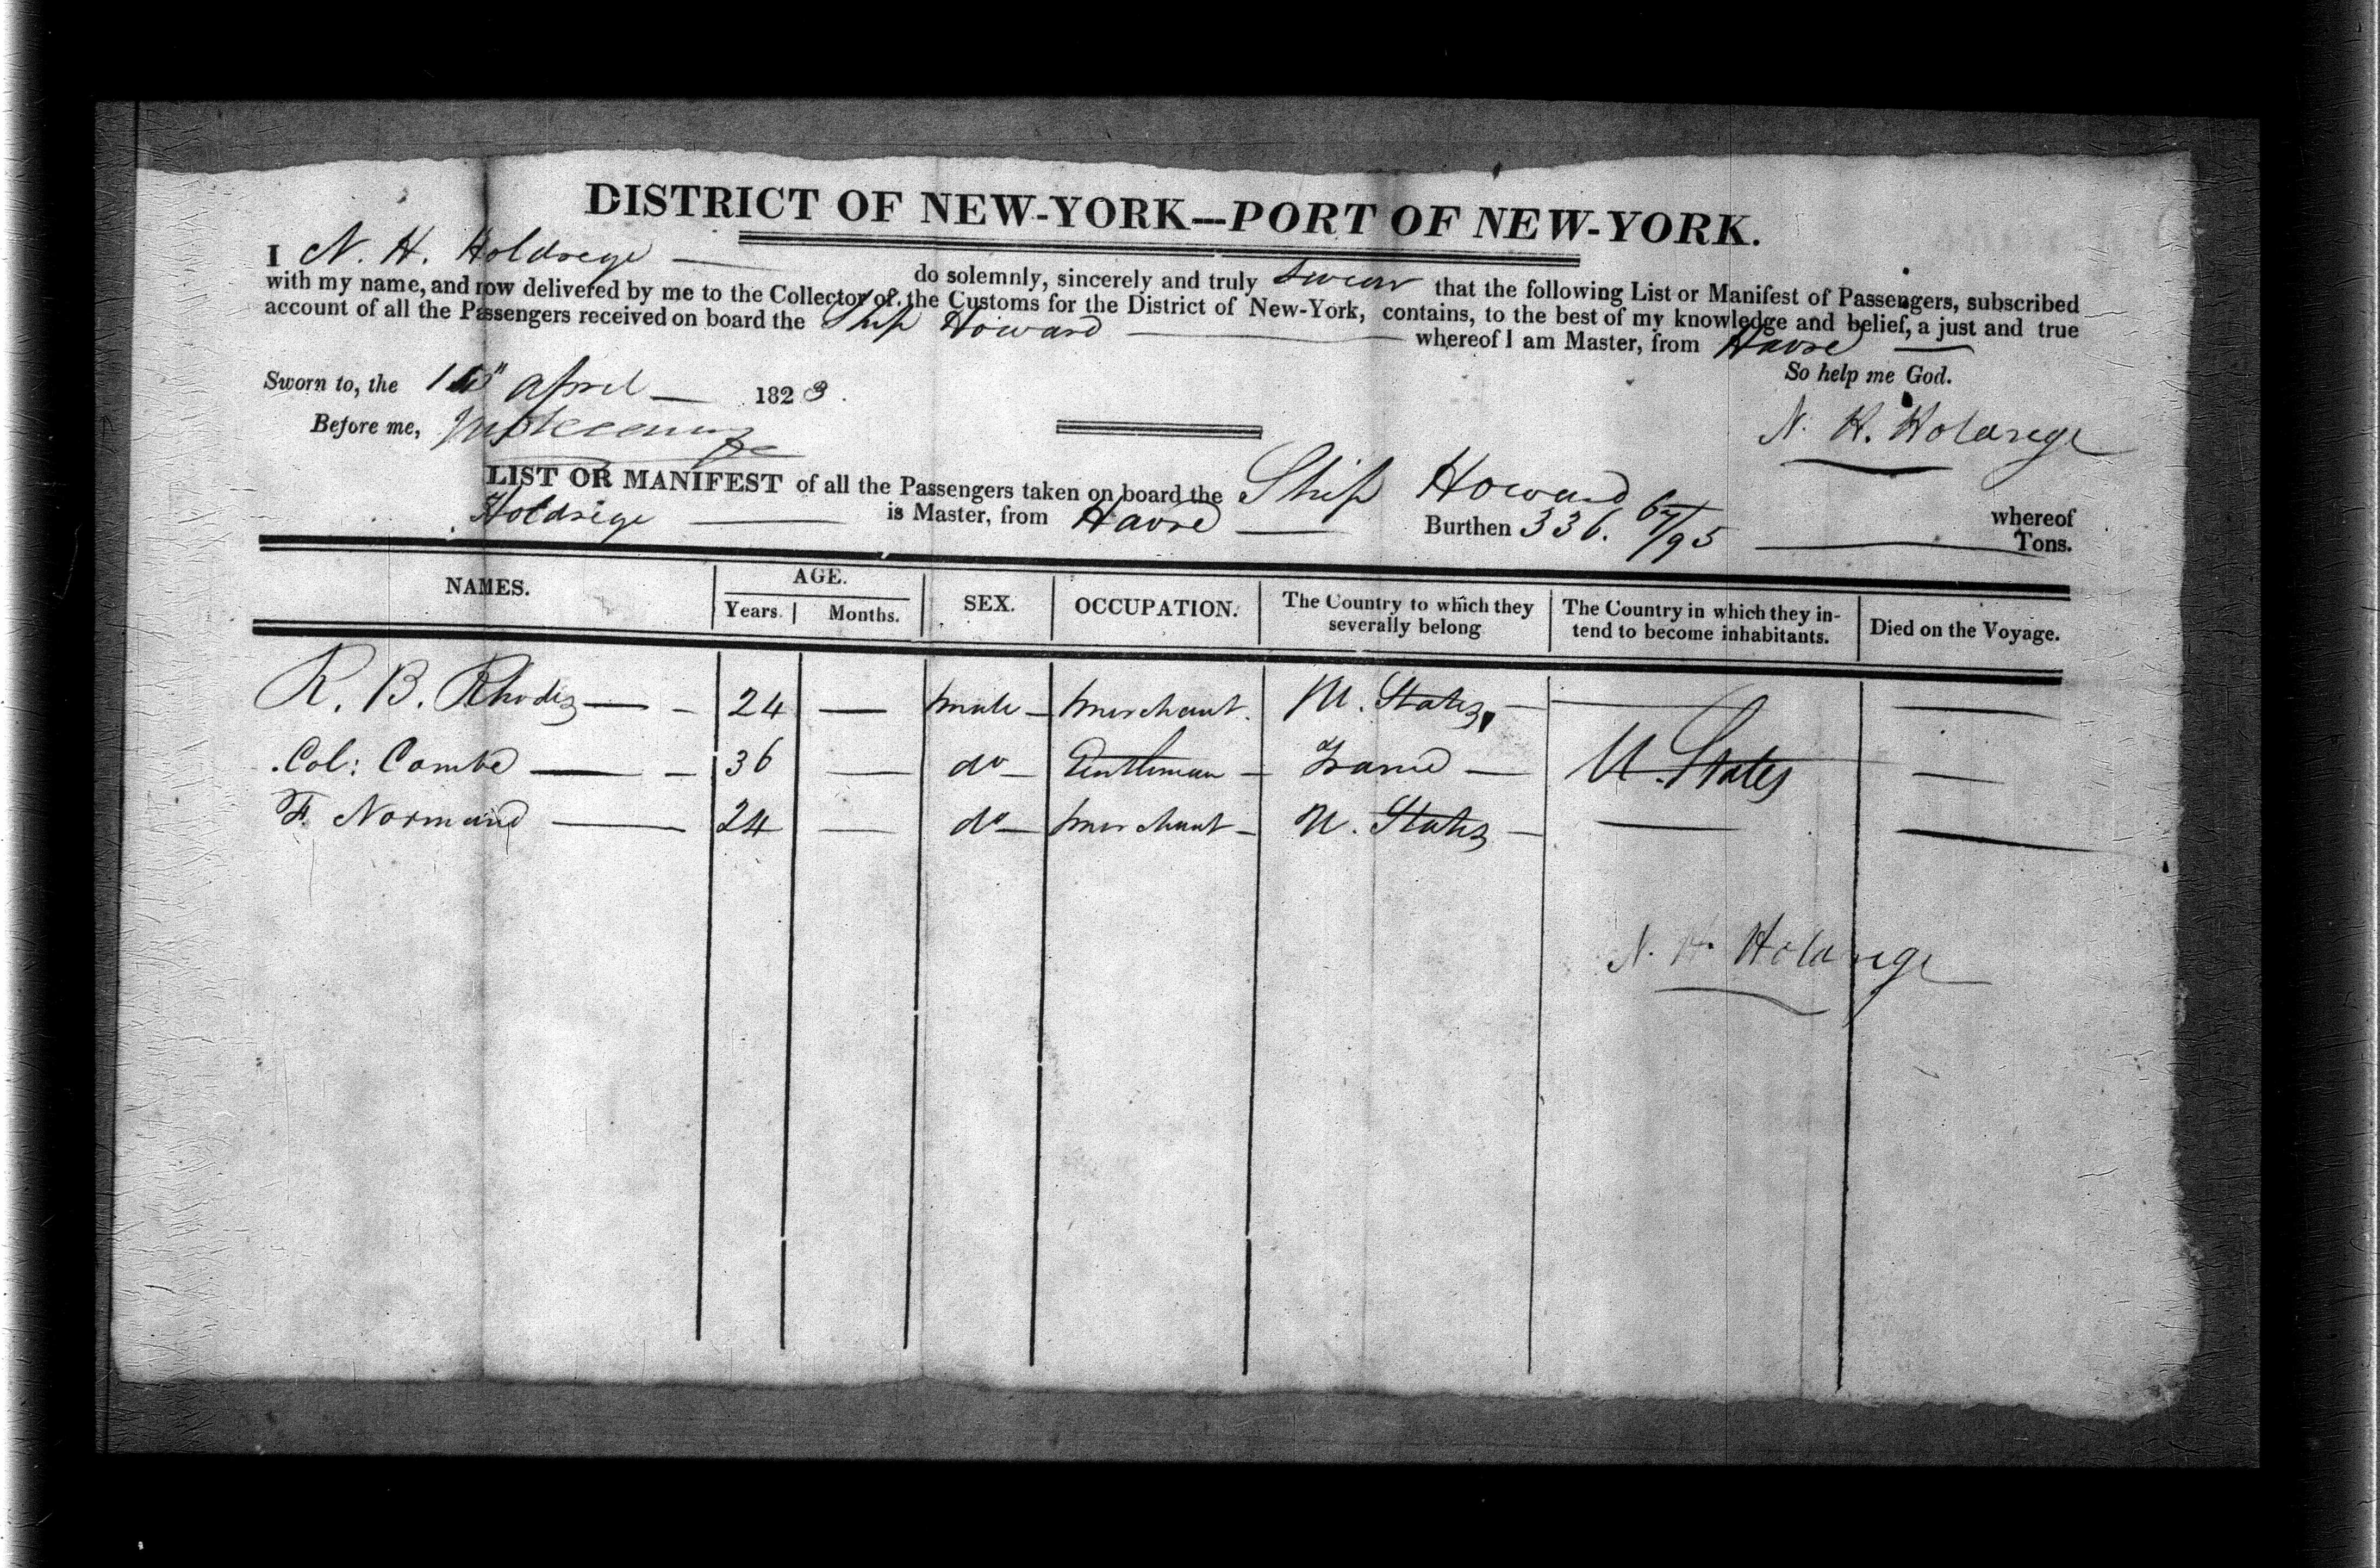 DISTRICT OF NEW-YORK—PORT OF NEW-YORK.
I N. H. Holdrege do solemnly, sincerely and truly swear that the following List or Manifest of Passengers, subscribed
with my name, and now delivered by me to the Collector of the Customs for the District of New-York, contains, to the best of my knowledge and belief, a just and true
account of all the Passengers received on board the Ship Howard whereof I am Master, from Havre
So help me God.
Sworn to, the April 1823.
Before me,
N. H. Holdrege
LIST OR MANIFEST of all the Passengers taken on board the Ship Howard whereof
Holdrege is Master, from Havre Burthen 336. 67/95 Tons.
NAMES. AGE. SEX. OCCUPATION. The Country to which they severally belong The Country in which they intend to become inhabitants. Died on the Voyage.
Years. Months.
R. B. Rhodes — 24 — male — merchant. U. States — — —
Col: Combe — 36 — do — Gentleman — France — U. States —
F. Normand — 24 — do — merchant — U. States — — —
N. H. Holdrege